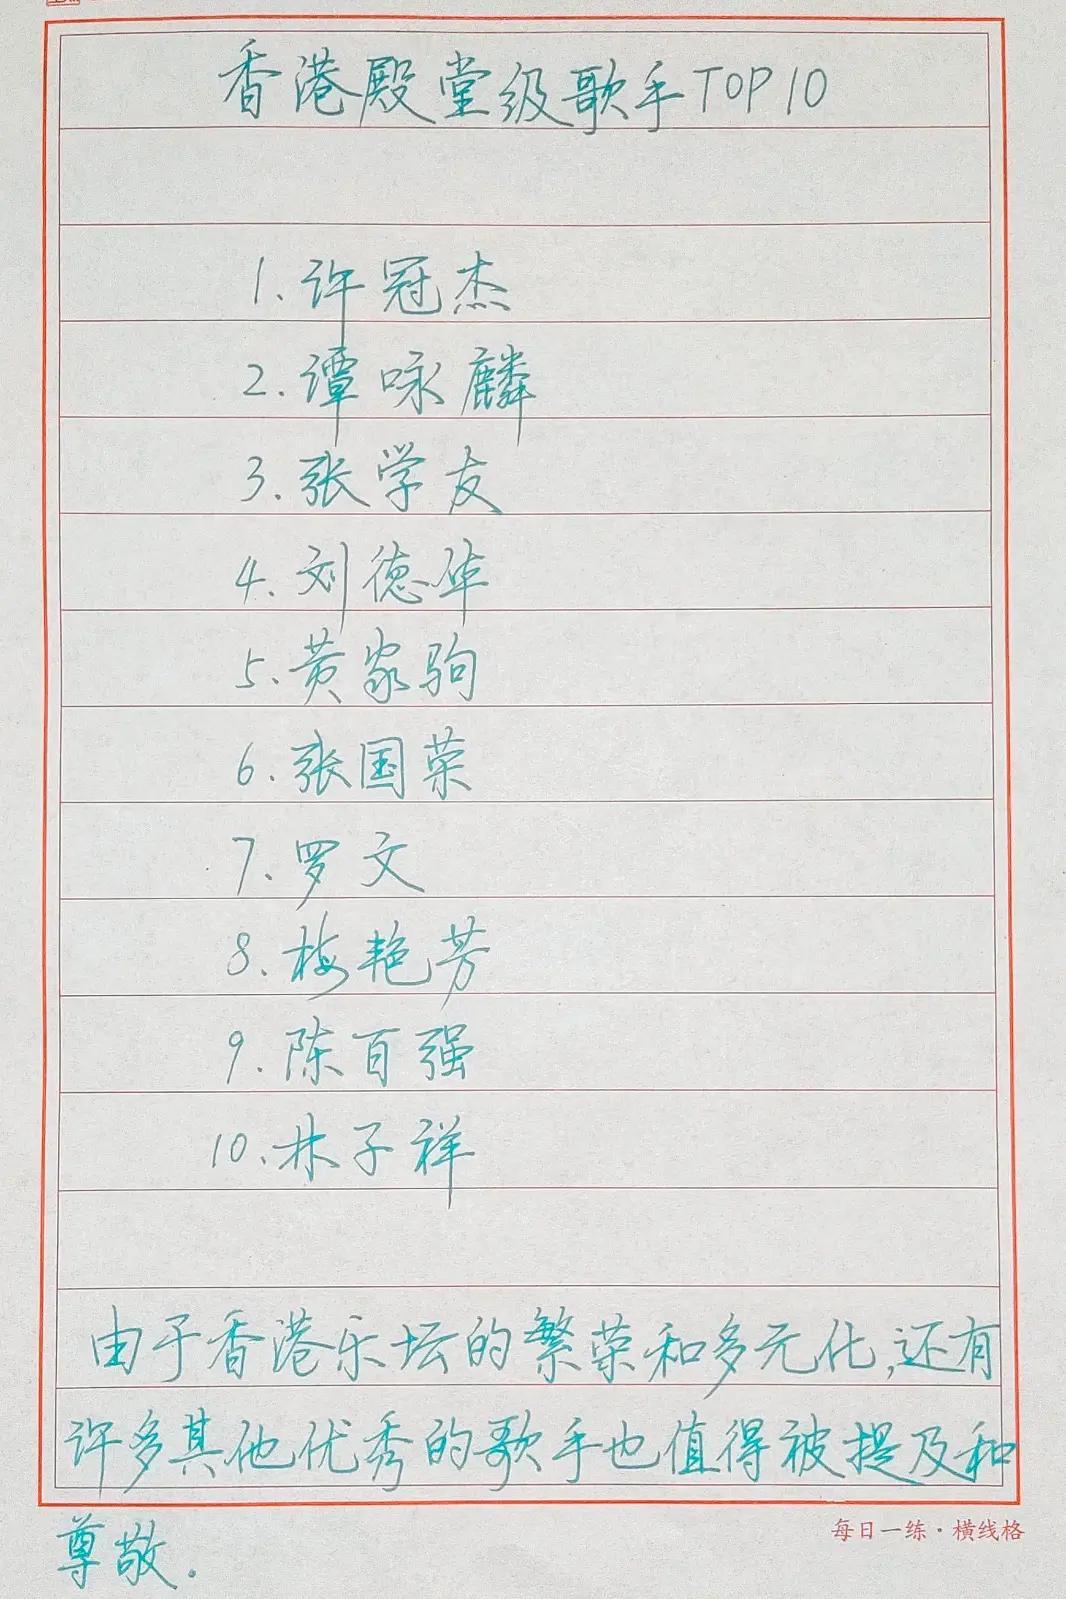 香港殿堂级歌手TOP10
1.许冠杰
2.谭咏麟
3.张学友
4.刘德华
5.黄家驹
6.张国荣
7.罗文
8.梅艳芳
9.陈百强
10.林子祥
由于香港乐坛的繁荣和多元化,还有
许多其他优秀的歌手也值得被提及和
尊敬.
每日一练·横线格